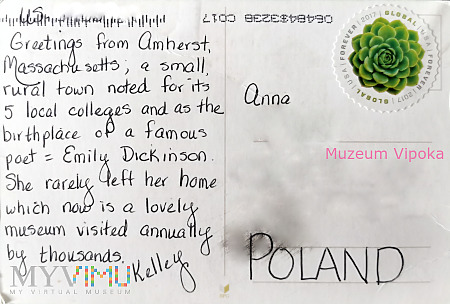 US.
0648432238 C017
Greetings from Amherst,
Massachusetts; a small,
rural town noted for its
5 local colleges and as the
birthplace of a famous
poet = Emily Dickinson.
She rarely left her home
which now is a lovely
museum visited annually
by thousands.
Kelley
GLOBAL USA FOREVER 2017 GLOBAL USA FOREVER 2017
Anna
Muzeum Vipoka
POLAND
MY VIMU
MY VIRTUAL MUSEUM